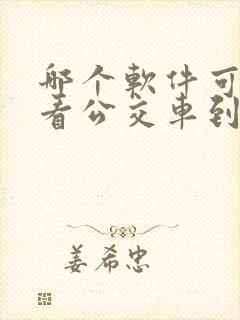 哪个軟件可
看公交車到
姜希忠